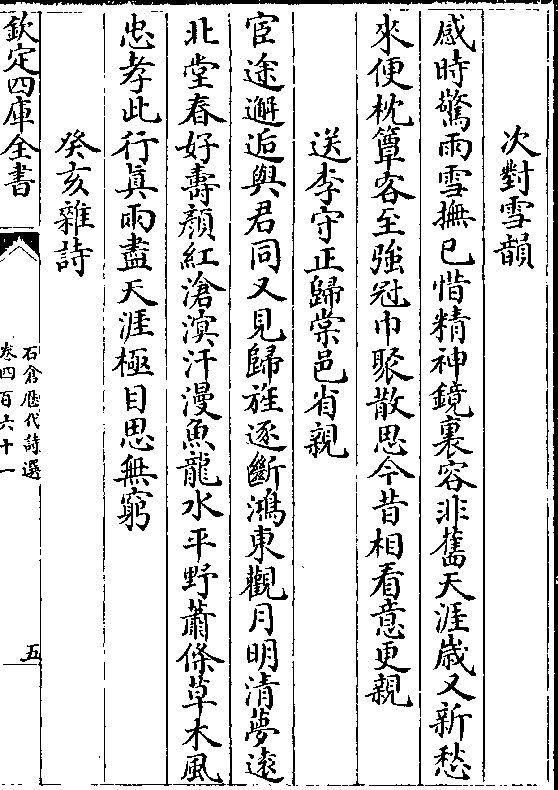 次對雪韻
感時驚雨雪撫已惜精神鏡裏容非舊天涯歲又新愁
來便枕簟客至強冠巾聚散思今昔相看意更親
送李守正歸棠邑省親
宦途邂逅與君同又見歸旌逐斷鴻東觀月明清夢遠
北堂春好壽顔紅滄溟汗漫魚龍水平野蕭條草木風
忠孝此行真兩盡天涯極目思無窮
癸亥雜詩
欽定四庫全書
石倉歴代詩選
卷四百六十一
五